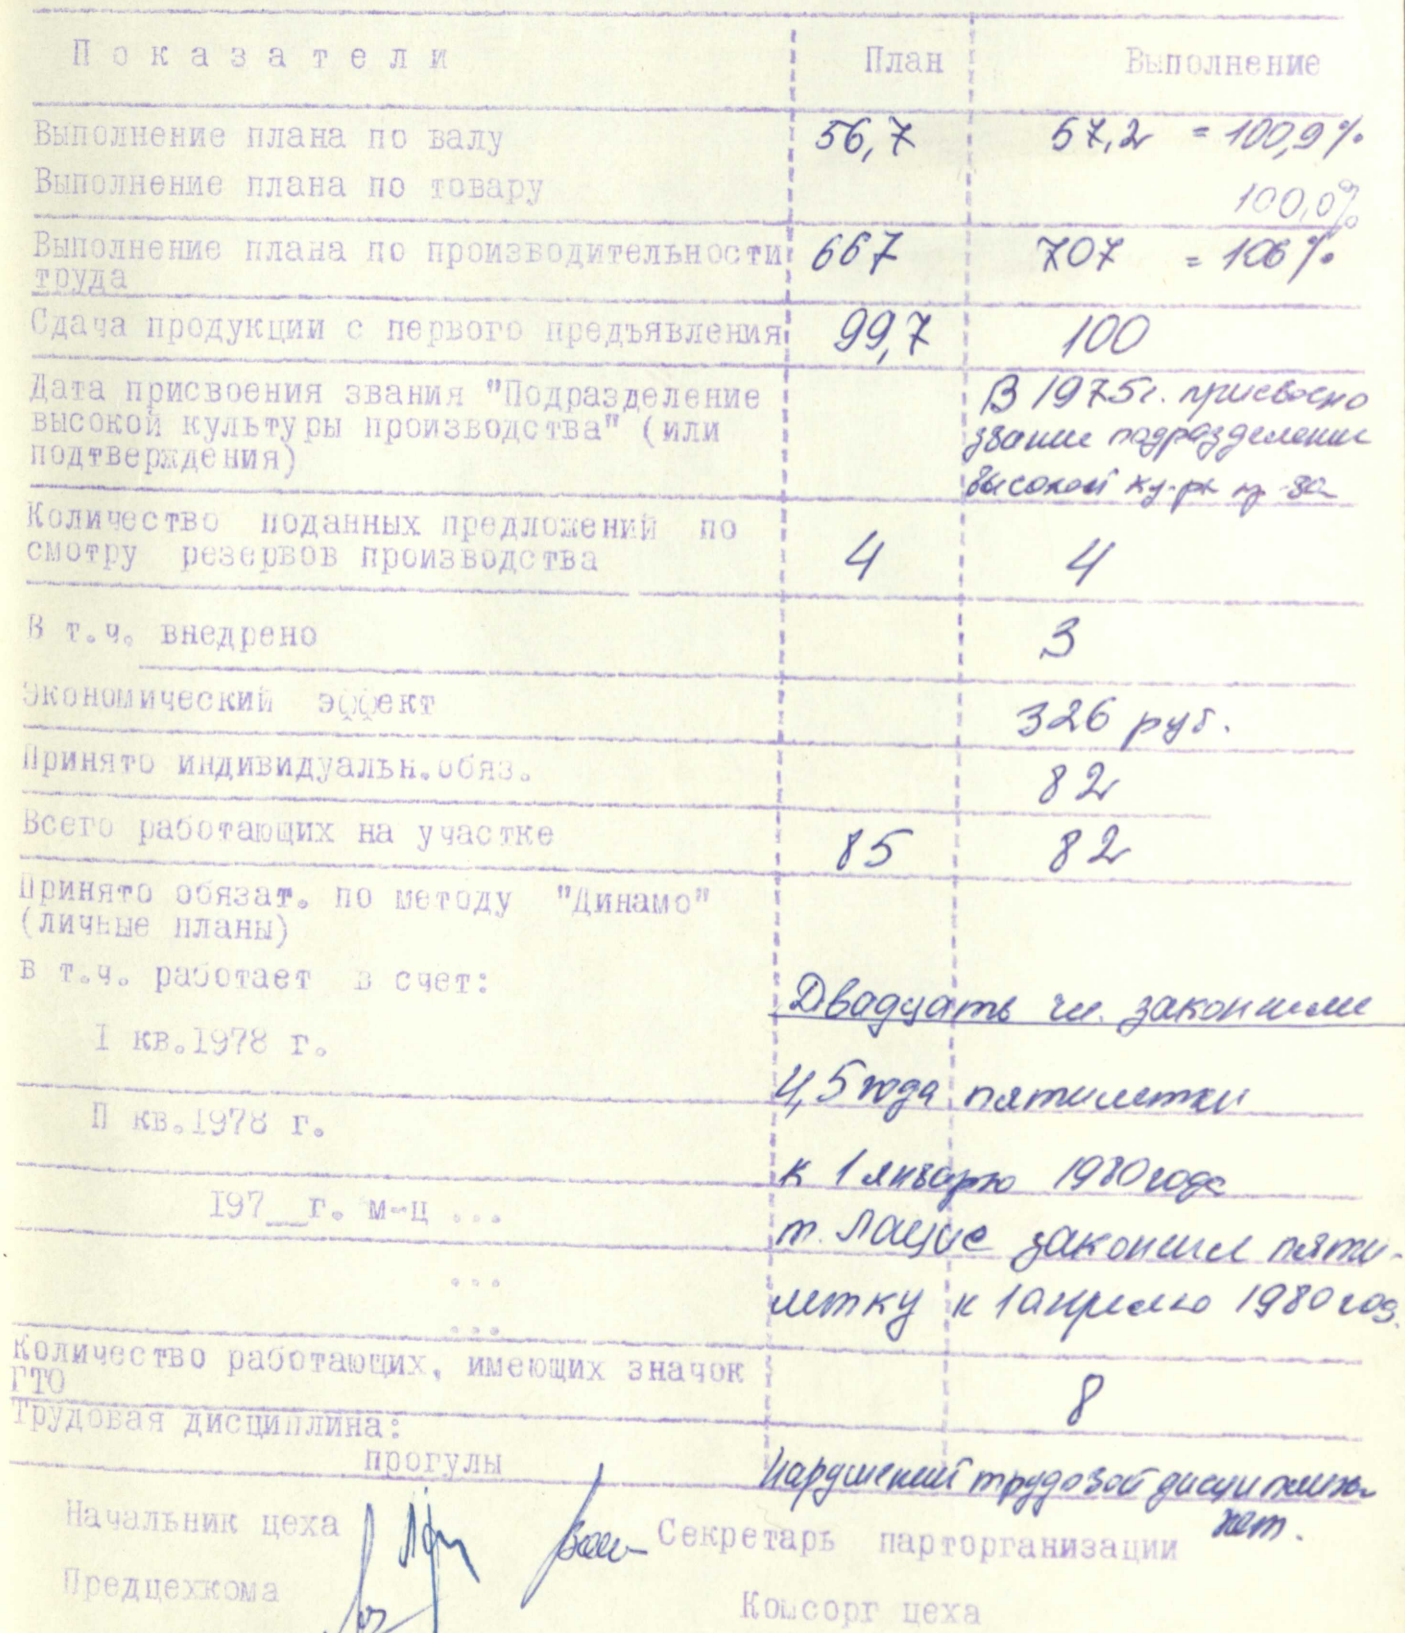 Показатели План Выполнение
Выполнение плана по валу 56,7 57,2 = 100,9%
Выполнение плана по товару 100,0%
Выполнение плана по производительности 667 707 = 106%
труда
Сдача продукции с первого предъявления 99,7 100
Дата присвоения звания "Подразделение В 1975г. присвоено
высокой культуры производства" (или звание подразделение
подтверждения) высокой ку-ры пр-ва
Количество поданных предложений по
смотру резервов производства 4 4
В т.ч. внедрено 3
Экономический эффект 326 руб.
Принято индивидуальн.обяз. 82
Всего работающих на участке 85 82
Принято обязат. по методу "Динамо"
(личные планы)
в т.ч. работает в счет: Двадцать чл. закончили
I кв.1978 г.
4,5 года пятилетки
П кв.1978 г.
к 1 январю 1980 года
197__г. м-ц ... т. Лацис закончил пяти-
... летку к 1 апрелю 1980 год.
...
Количество работающих, имеющих значок
ГТО 8
Трудовая дисциплина:
прогулы Нарушений трудовой дисциплины
нет.
Начальник цеха Секретарь парторганизации
Предцехкома Комсорг цеха